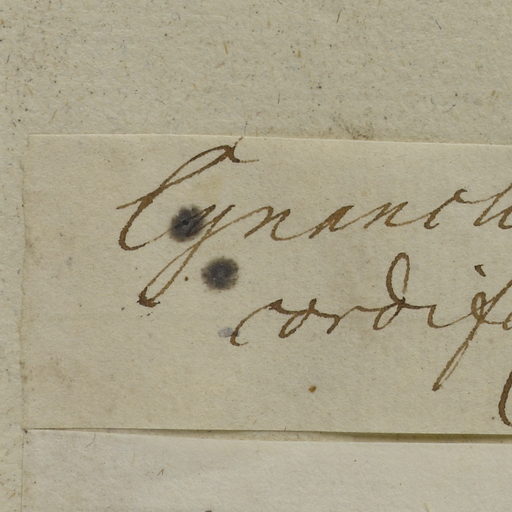 Cynanch
cordifo